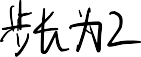 步长为2